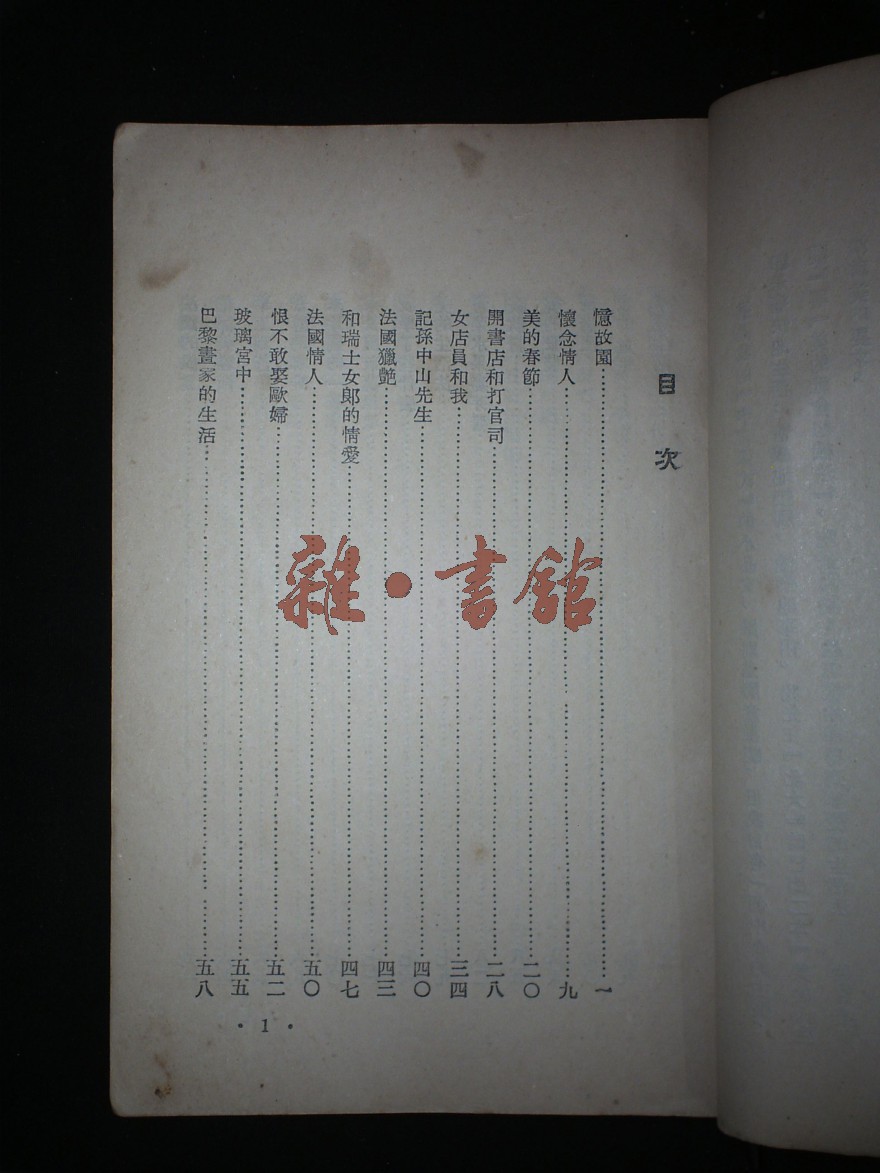 目次
憶故園……一
懷念情人……九
美的春節……二〇
開書店和打官司……二八
女店員和我……三四
記孫中山先生……四〇
法國獵艷……四三
和瑞士女郞的情愛……四七
法國情人……五〇
恨不敢娶歐婦……五二
玻璃宮中……五五
巴黎畫家的生活……五八
• 1 •
雜•書館